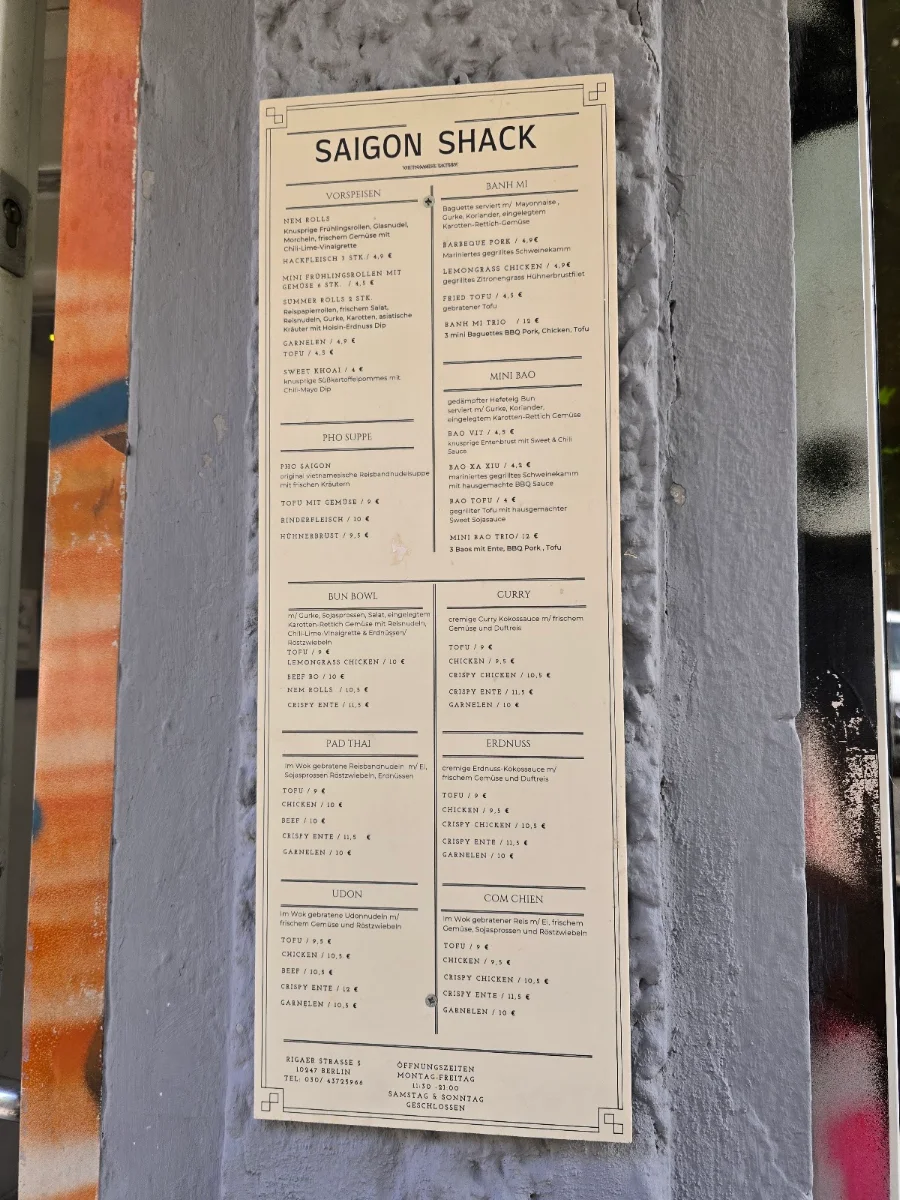 SAIGON SHACK
VIETNAMESE EATERY
VORSPEISEN
NEM ROLLS
Knusprige Frühlingsrollen, Glasnudel,
Morcheln, frischem Gemüse mit
Chili-Lime-Vinaigrette
HACKFLEISCH 3 STK / 4,9 €
MINI FRÜHLINGSROLLEN MIT
GEMÜSE 6 STK. / 4,5 €
SUMMER ROLLS 2 STK.
Reispapierrollen, frischem Salat,
Reisnudeln, Gurke, Karotten, asiatische
Kräuter mit Hoisin-Erdnuss Dip
GARNELEN / 4,9 €
TOFU / 4,5 €
SWEET KHOAI / 4 €
knusprige Süßkartoffelpommes mit
Chili-Mayo Dip
PHO SUPPE
PHO SAIGON
original vietnamesische Reisbandnudelsuppe
mit frischen Kräutern
TOFU MIT GEMÜSE / 9 €
RINDERFLEISCH / 10 €
HÜHNERBRUST / 9,5 €
BANH MI
Baguette serviert m/ Mayonnaise ,
Gurke, Koriander, eingelegtem
Karotten-Rettich-Gemüse
BARBEQUE PORK / 4,9€
Mariniertes gegrilltes Schweinekamm
LEMONGRASS CHICKEN / 4,9€
gegrilltes Zitronengrass Hühnerbrustfilet
FRIED TOFU / 4,5 €
gebratener Tofu
BANH MI TRIO / 12 €
3 mini Baguettes BBQ Pork, Chicken, Tofu
MINI BAO
gedämpfter Hefeteig Bun
serviert m/ Gurke, Koriander,
eingelegtem Karotten-Rettich Gemüse
BAO VIT / 4,5 €
knusprige Entenbrust mit Sweet & Chili
Sauce
BAO XA XIU / 4,2 €
mariniertes gegrilltes Schweinekamm
mit hausgemachte BBQ Sauce
BAO TOFU / 4 €
gegrillter Tofu mit hausgemachter
Sweet Sojasauce
MINI BAO TRIO/ 12 €
3 Baos mit Ente, BBQ Pork , Tofu
BUN BOWL
m/ Gurke, Sojasprossen, Salat, eingelegtem
Karotten-Rettich Gemüse mit Reisnudeln,
Chili-Lime-Vinaigrette & Erdnüssen/
Röstzwiebeln
TOFU / 9 €
LEMONGRASS CHICKEN / 10 €
BEEF BO / 10 €
NEM ROLLS / 10,5 €
CRISPY ENTE / 11,5 €
CURRY
cremige Curry Kokossauce m/ frischem
Gemüse und Duftreis
TOFU / 9 €
CHICKEN / 9,5 €
CRISPY CHICKEN / 10,5 €
CRISPY ENTE / 11,5 €
GARNELEN / 10 €
PAD THAI
Im Wok gebratene Reisbandnudeln m/ Ei,
Sojasprossen Röstzwiebeln, Erdnüssen
TOFU / 9 €
CHICKEN / 10 €
BEEF / 10 €
CRISPY ENTE / 11,5 €
GARNELEN / 10 €
ERDNUSS
cremige Erdnuss-Kokossauce m/
frischem Gemüse und Duftreis
TOFU / 9 €
CHICKEN / 9,5 €
CRISPY CHICKEN / 10,5 €
CRISPY ENTE / 11,5 €
GARNELEN / 10 €
UDON
Im Wok gebratene Udonnudeln m/
frischem Gemüse und Röstzwiebeln
TOFU / 9,5 €
CHICKEN / 10,5 €
BEEF / 10,5 €
CRISPY ENTE / 12 €
GARNELEN / 10,5 €
COM CHIEN
Im Wok gebratener Reis m/ Ei, frischem
Gemüse, Sojasprossen und Röstzwiebeln
TOFU / 9 €
CHICKEN / 9,5 €
CRISPY CHICKEN / 10,5 €
CRISPY ENTE / 11,5 €
GARNELEN / 10 €
RIGAER STRASSE 5
10247 BERLIN
TEL: 030/ 43725966
ÖFFNUNGSZEITEN
MONTAG-FREITAG
11:30 -21:00
SAMSTAG & SONNTAG
GESCHLOSSEN